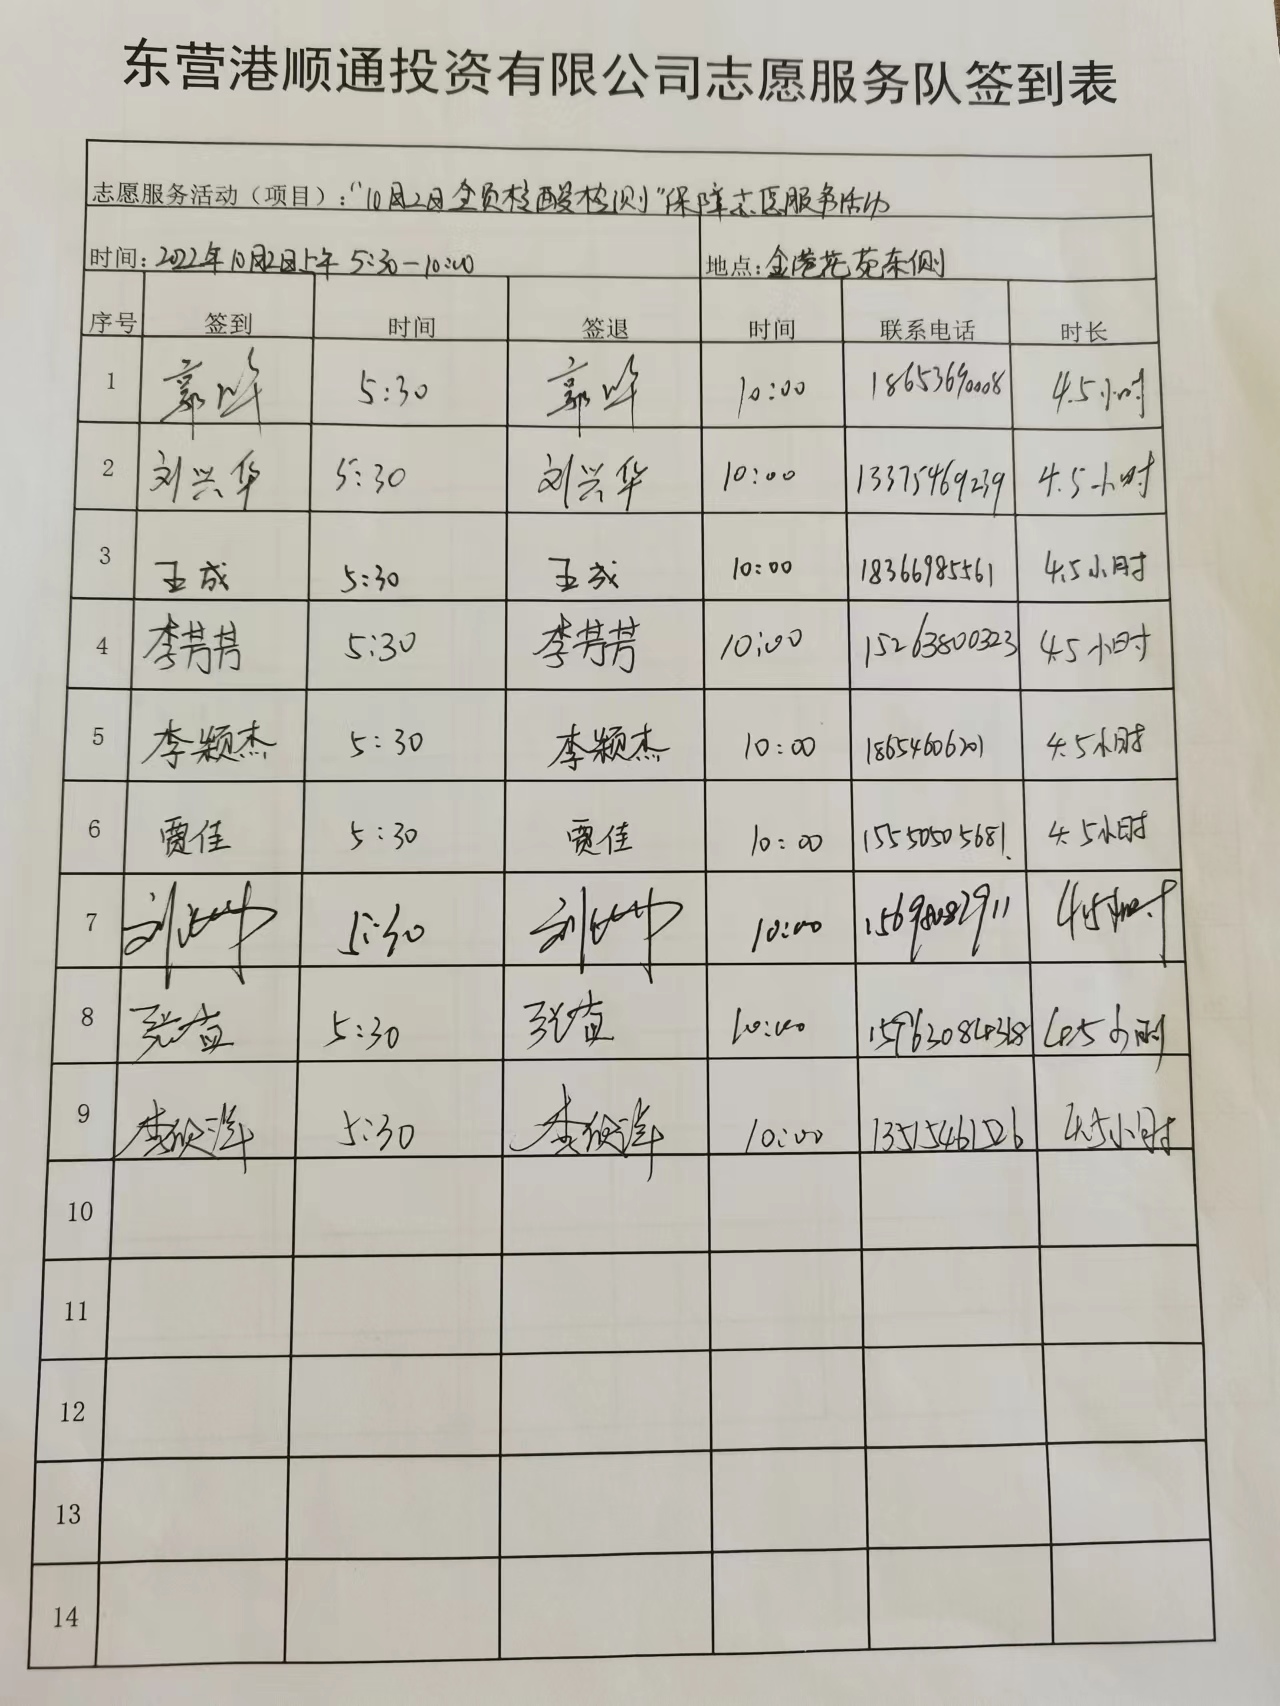 东营港顺通投资有限公司志愿服务队签到表
志愿服务活动（项目）：“10月2日全员核酸检测”保障志愿服务活动
时间：2022年10月2日上午 5:30-10:00 地点：金港花苑东侧
序号 签到 时间 签退 时间 联系电话 时长
1 郭 5:30 郭 10:00 18653690008 4.5小时
2 刘兴华 5:30 刘兴华 10:00 13375469239 4.5小时
3 王成 5:30 王成 10:00 18366985561 4.5小时
4 李芳芳 5:30 李芳芳 10:00 15263800323 4.5小时
5 李颖杰 5:30 李颖杰 10:00 18654606201 4.5小时
6 贾佳 5:30 贾佳 10:00 15550505681. 4.5小时
7 刘 5:30 刘 10:00 4.5小时
8 张 5:30 张 10:00 4.5小时
9 李 5:30 李 10:00 13515461526 4.5小时
10
11
12
13
14